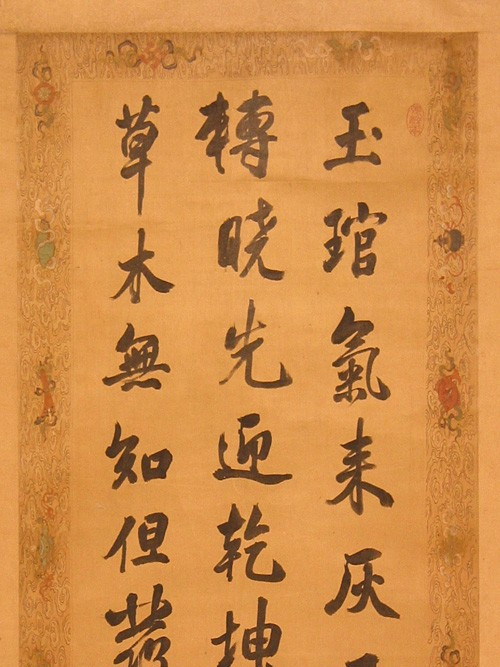 玉琯氣来灰
轉曉先迎乾坤
草木無知但